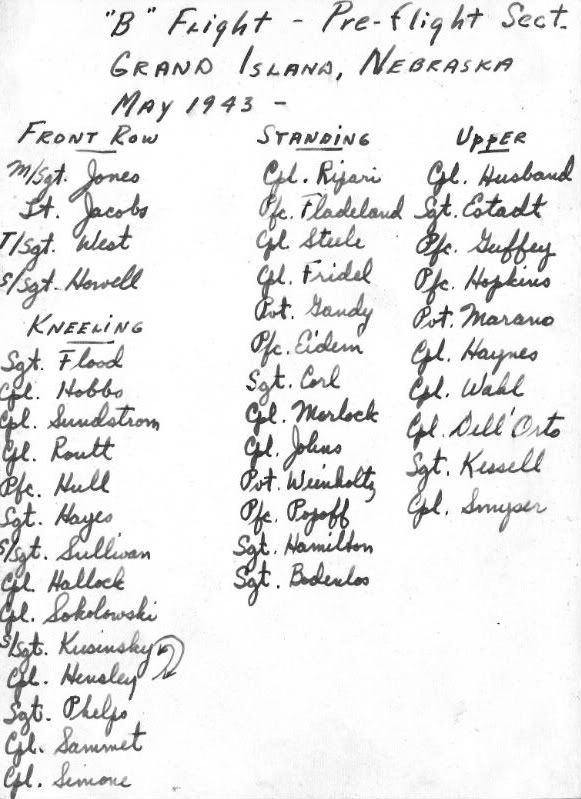 "B" Flight - Pre-flight Sect.
Grand Island, Nebraska
May 1943 -
Front Row
M/Sgt. Jones
Lt. Jacobs
T/Sgt. West
S/Sgt. Howell
Kneeling
Sgt. Flood
Cpl. Hobbs
Cpl. Sundstrom
Cpl. Routt
Pfc. Hull
Sgt. Hayes
S/Sgt. Sullivan
Cpl. Hallock
Cpl. Sokolowski
S/Sgt. Kusinsky
Cpl. Hensley
Sgt. Phelps
Cpl. Sammet
Cpl. Simone
Standing
Cpl. Rifari
Pfc. Fladeland
Cpl. Steele
Cpl. Fridel
Pvt. Gandy
Pfc. Eidem
Sgt. Corl
Cpl. Morlock
Cpl. Johns
Pvt. Weinholtz
Pfc. Popoff
Sgt. Hamilton
Sgt. Bodenlos
Upper
Cpl. Husband
Sgt. Estadt
Pfc. Guffey
Pfc. Hopkins
Pvt. Marano
Cpl. Haynes
Cpl. Wahl
Cpl. Dell'Orto
Sgt. Kessell
Cpl. Smyser